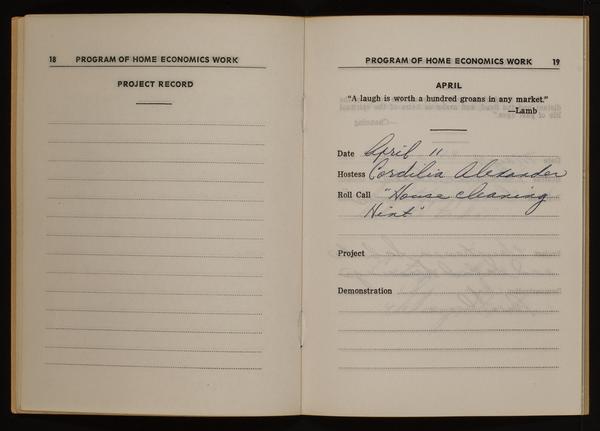 18 PROGRAM OF HOME ECONOMICS WORK
PROJECT RECORD
PROGRAM OF HOME ECONOMICS WORK 19
APRIL
"A laugh is worth a hundred groans in any market."
—Lamb
Date April 11
Hostess Cordilia Alexander
Roll Call "House cleaning
Hint"
Project
Demonstration